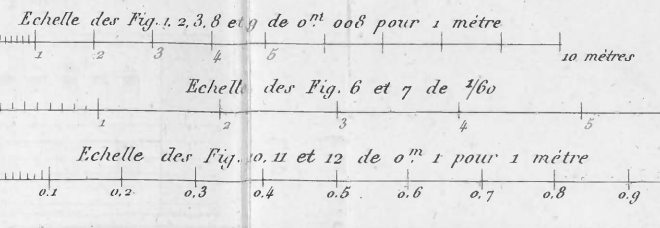 Echelle des Fig. 1, 2, 3, 8 et 9 de 0.m 008 pour 1 métre
1 2 3 4 5 10 métres
Echelle des Fig. 6 et 7 de 1/60
1 2 3 4 5
Echelle des Fig. 10, 11 et 12 de 0.m 1 pour 1 métre
0.1 0.2 0.3 0.4 0.5 0.6 0.7 0.8 0.9